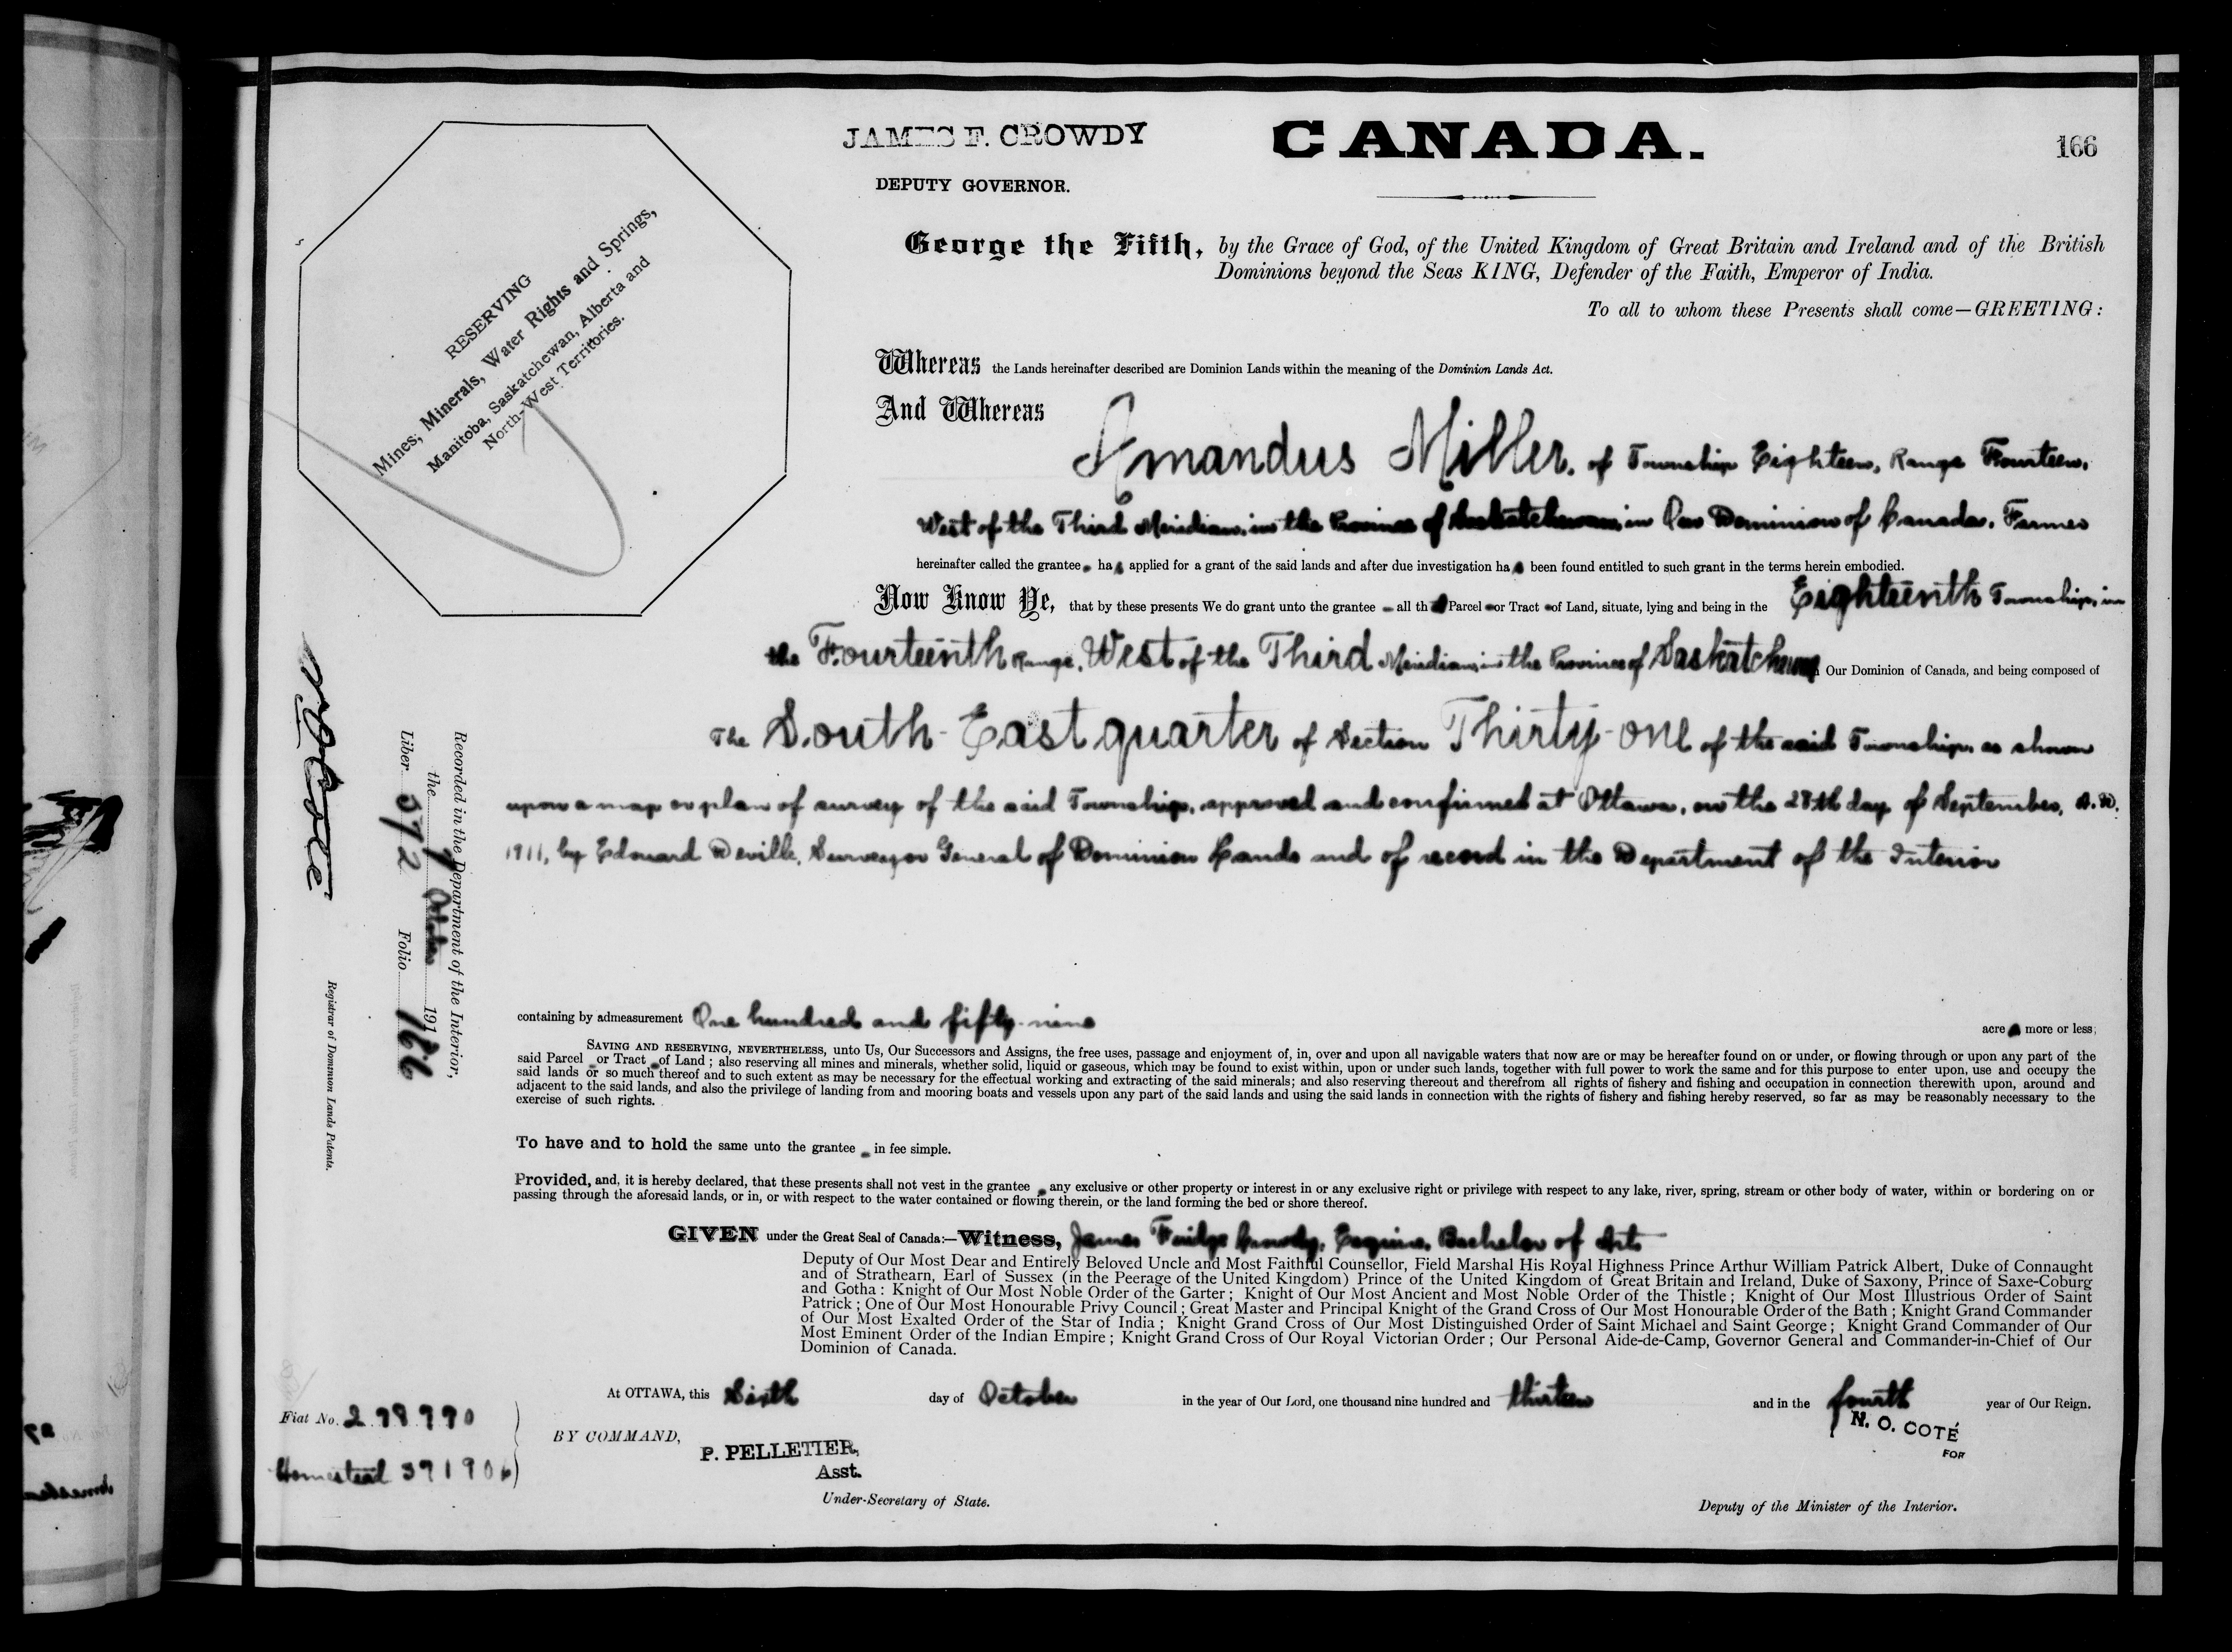 JAMES F. CROWDY
DEPUTY GOVERNOR.
CANADA.
166
RESERVING
Mines, Minerals, Water Rights and Springs,
Manitoba, Saskatchewan, Alberta and
North-West Territories.
George the Fifth, by the Grace of God, of the United Kingdom of Great Britain and Ireland and of the British
Dominions beyond the Seas KING, Defender of the Faith, Emperor of India.
To all to whom these Presents shall come—GREETING:
Whereas the Lands hereinafter described are Dominion Lands within the meaning of the Dominion Lands Act.
And Whereas
Amandus Miller, of Township Eighteen, Range Fourteen,
West of the Third Meridian, in the Province of Saskatchewan, in Our Dominion of Canada, Farmer
hereinafter called the grantee has applied for a grant of the said lands and after due investigation has been found entitled to such grant in the terms herein embodied.
Now Know Ye, that by these presents We do grant unto the grantee all that Parcel or Tract of Land, situate, lying and being in the Eighteenth Township, in
the Fourteenth Range, West of the Third Meridian, in the Province of Saskatchewan Our Dominion of Canada, and being composed of
The South-East quarter of Section Thirty-one of the said Township, as shown
upon a map or plan of survey of the said Township, approved and confirmed at Ottawa, on the 28th day of September, A.D.
1911, by Edouard Deville, Surveyor General of Dominion Lands and of record in the Department of the Interior
containing by admeasurement One hundred and fifty-nine acres more or less;
SAVING AND RESERVING, NEVERTHELESS, unto Us, Our Successors and Assigns, the free uses, passage and enjoyment of, in, over and upon all navigable waters that now are or may be hereafter found on or under, or flowing through or upon any part of the
said Parcel or Tract of Land; also reserving all mines and minerals, whether solid, liquid or gaseous, which may be found to exist within, upon or under such lands, together with full power to work the same and for this purpose to enter upon, use and occupy the
said lands or so much thereof and to such extent as may be necessary for the effectual working and extracting of the said minerals; and also reserving thereout and therefrom all rights of fishery and fishing and occupation in connection therewith upon, around and
adjacent to the said lands, and also the privilege of landing from and mooring boats and vessels upon any part of the said lands and using the said lands in connection with the rights of fishery and fishing hereby reserved, so far as may be reasonably necessary to the
exercise of such rights.
To have and to hold the same unto the grantee in fee simple.
Provided, and, it is hereby declared, that these presents shall not vest in the grantee any exclusive or other property or interest in or any exclusive right or privilege with respect to any lake, river, spring, stream or other body of water, within or bordering on or
passing through the aforesaid lands, or in, or with respect to the water contained or flowing therein, or the land forming the bed or shore thereof.
GIVEN under the Great Seal of Canada:—Witness, James Fuidge Crowdy, Esquire, Bachelor of Arts
Deputy of Our Most Dear and Entirely Beloved Uncle and Most Faithful Counsellor, Field Marshal His Royal Highness Prince Arthur William Patrick Albert, Duke of Connaught
and of Strathearn, Earl of Sussex (in the Peerage of the United Kingdom) Prince of the United Kingdom of Great Britain and Ireland, Duke of Saxony, Prince of Saxe-Coburg
and Gotha: Knight of Our Most Noble Order of the Garter; Knight of Our Most Ancient and Most Noble Order of the Thistle; Knight of Our Most Illustrious Order of Saint
Patrick; One of Our Most Honourable Privy Council; Great Master and Principal Knight of the Grand Cross of Our Most Honourable Order of the Bath; Knight Grand Commander
of Our Most Exalted Order of the Star of India; Knight Grand Cross of Our Most Distinguished Order of Saint Michael and Saint George; Knight Grand Commander of Our
Most Eminent Order of the Indian Empire; Knight Grand Cross of Our Royal Victorian Order; Our Personal Aide-de-Camp, Governor General and Commander-in-Chief of Our
Dominion of Canada.
At OTTAWA, this Sixth day of October in the year of Our Lord, one thousand nine hundred and thirteen and in the fourth year of Our Reign.
BY COMMAND,
P. PELLETIER,
Asst.
Under-Secretary of State.
N. O. COTÉ
FOR
Deputy of the Minister of the Interior.
Fiat No. 298990
Homestead
Recorded in the Department of the Interior,
the 7 October 191
Liber 572 Folio 166
N O Coté
Registrar of Dominion Lands Patents.